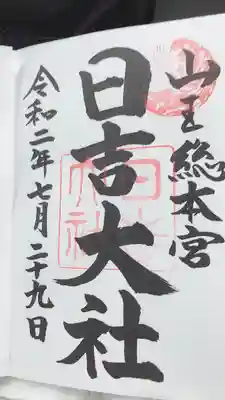 山王総本宮
日吉大社
令和二年七月二十九日